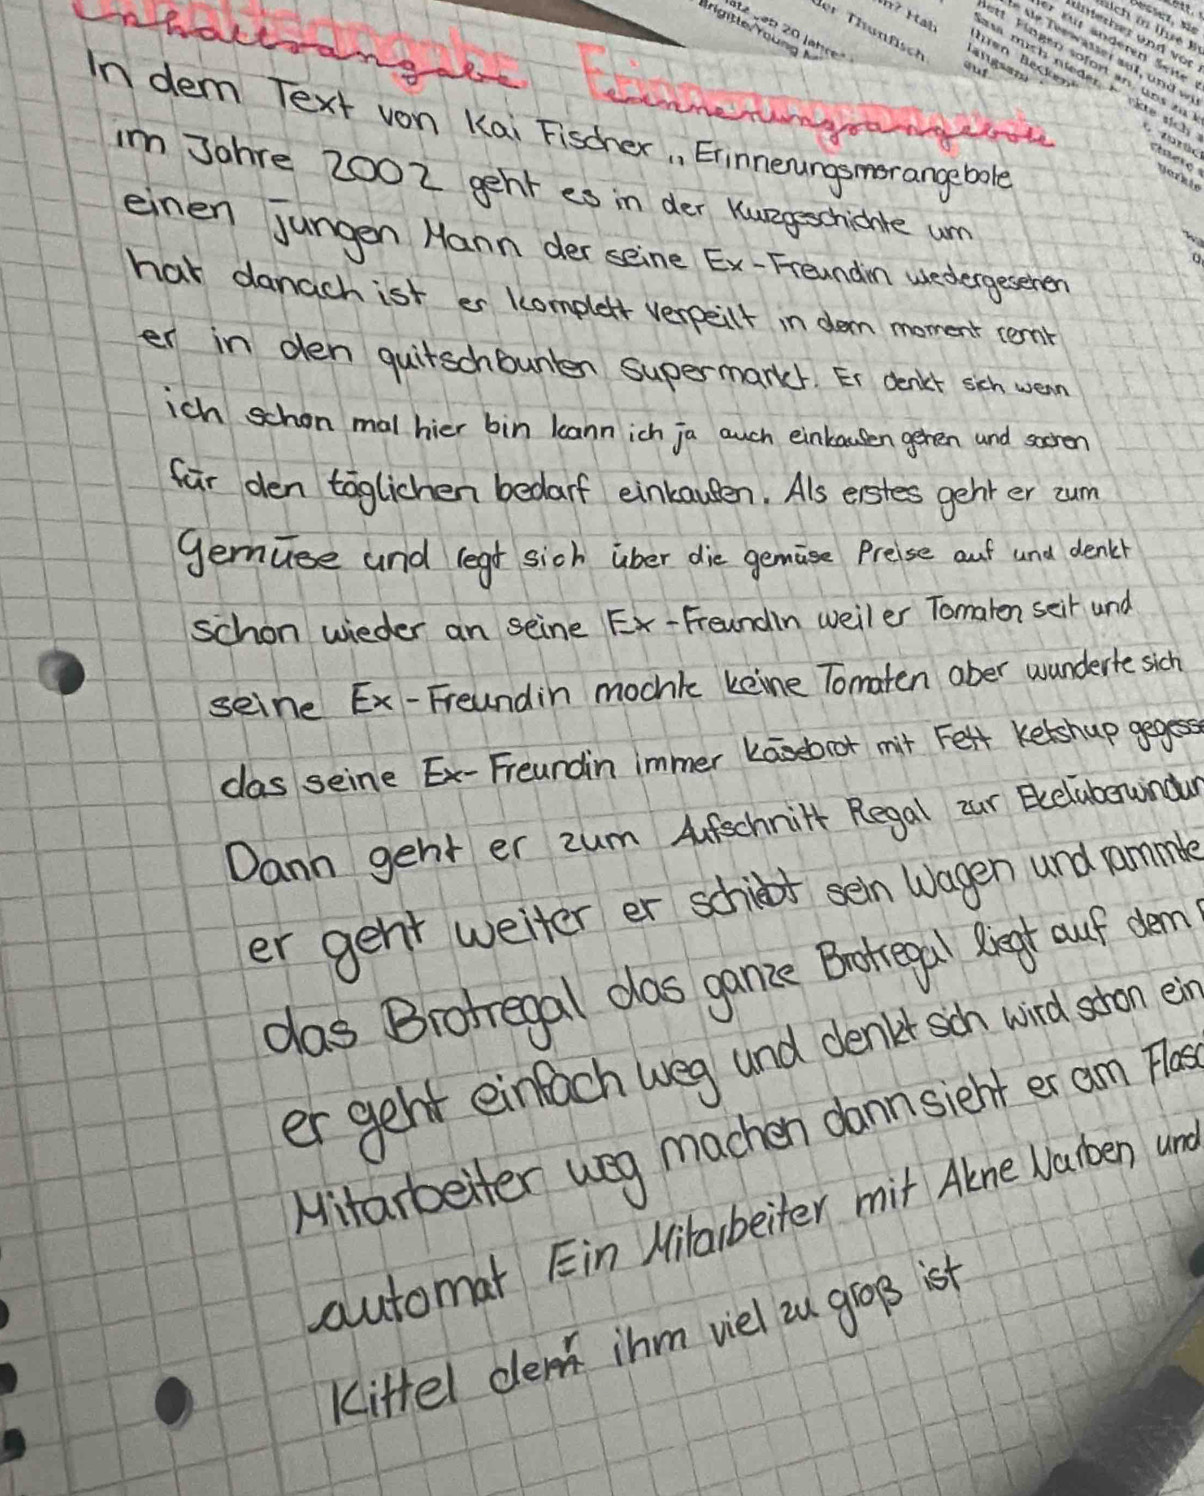 Inhaltsangabe Erinnerungsangebote
In dem Text von Kai Fischer „Erinnerungsmorangebote
im Jahre 2002 geht es in der Kurzgeschichte um
einen jungen Mann der seine Ex-Freundin wiedergesehen
hat danach ist er komplett verpeilt in dem moment rennt
er in den quitschbunten Supermarkt. Er denkt sich wenn
ich schon mal hier bin kann ich ja auch einkaufen gehen und sachen
für den täglichen bedarf einkaufen. Als erstes geht er zum
Gemüse und regt sich über die gemüse Preise auf und denkt
schon wieder an seine Ex-Freundin weil er Tomaten seit und
seine Ex-Freundin mochte keine Tomaten aber wunderte sich
das seine Ex-Freundin immer Käsebrot mit Fett Ketshup gegess
Dann geht er zum Aufschnitt Regal zur Ekelüberwindun
er geht weiter er schiebt sein Wagen und rammte
das Brotregal das ganze Brotregal liegt auf dem
er geht einfach weg und denkt sich wird schon ein
Mitarbeiter weg machen dann sieht er am Flasc
automat Ein Mitarbeiter mit Akne Narben und
Kittel der ihm viel zu groß ist
Brigitte/Young
20 Jahre
der Thunfisch